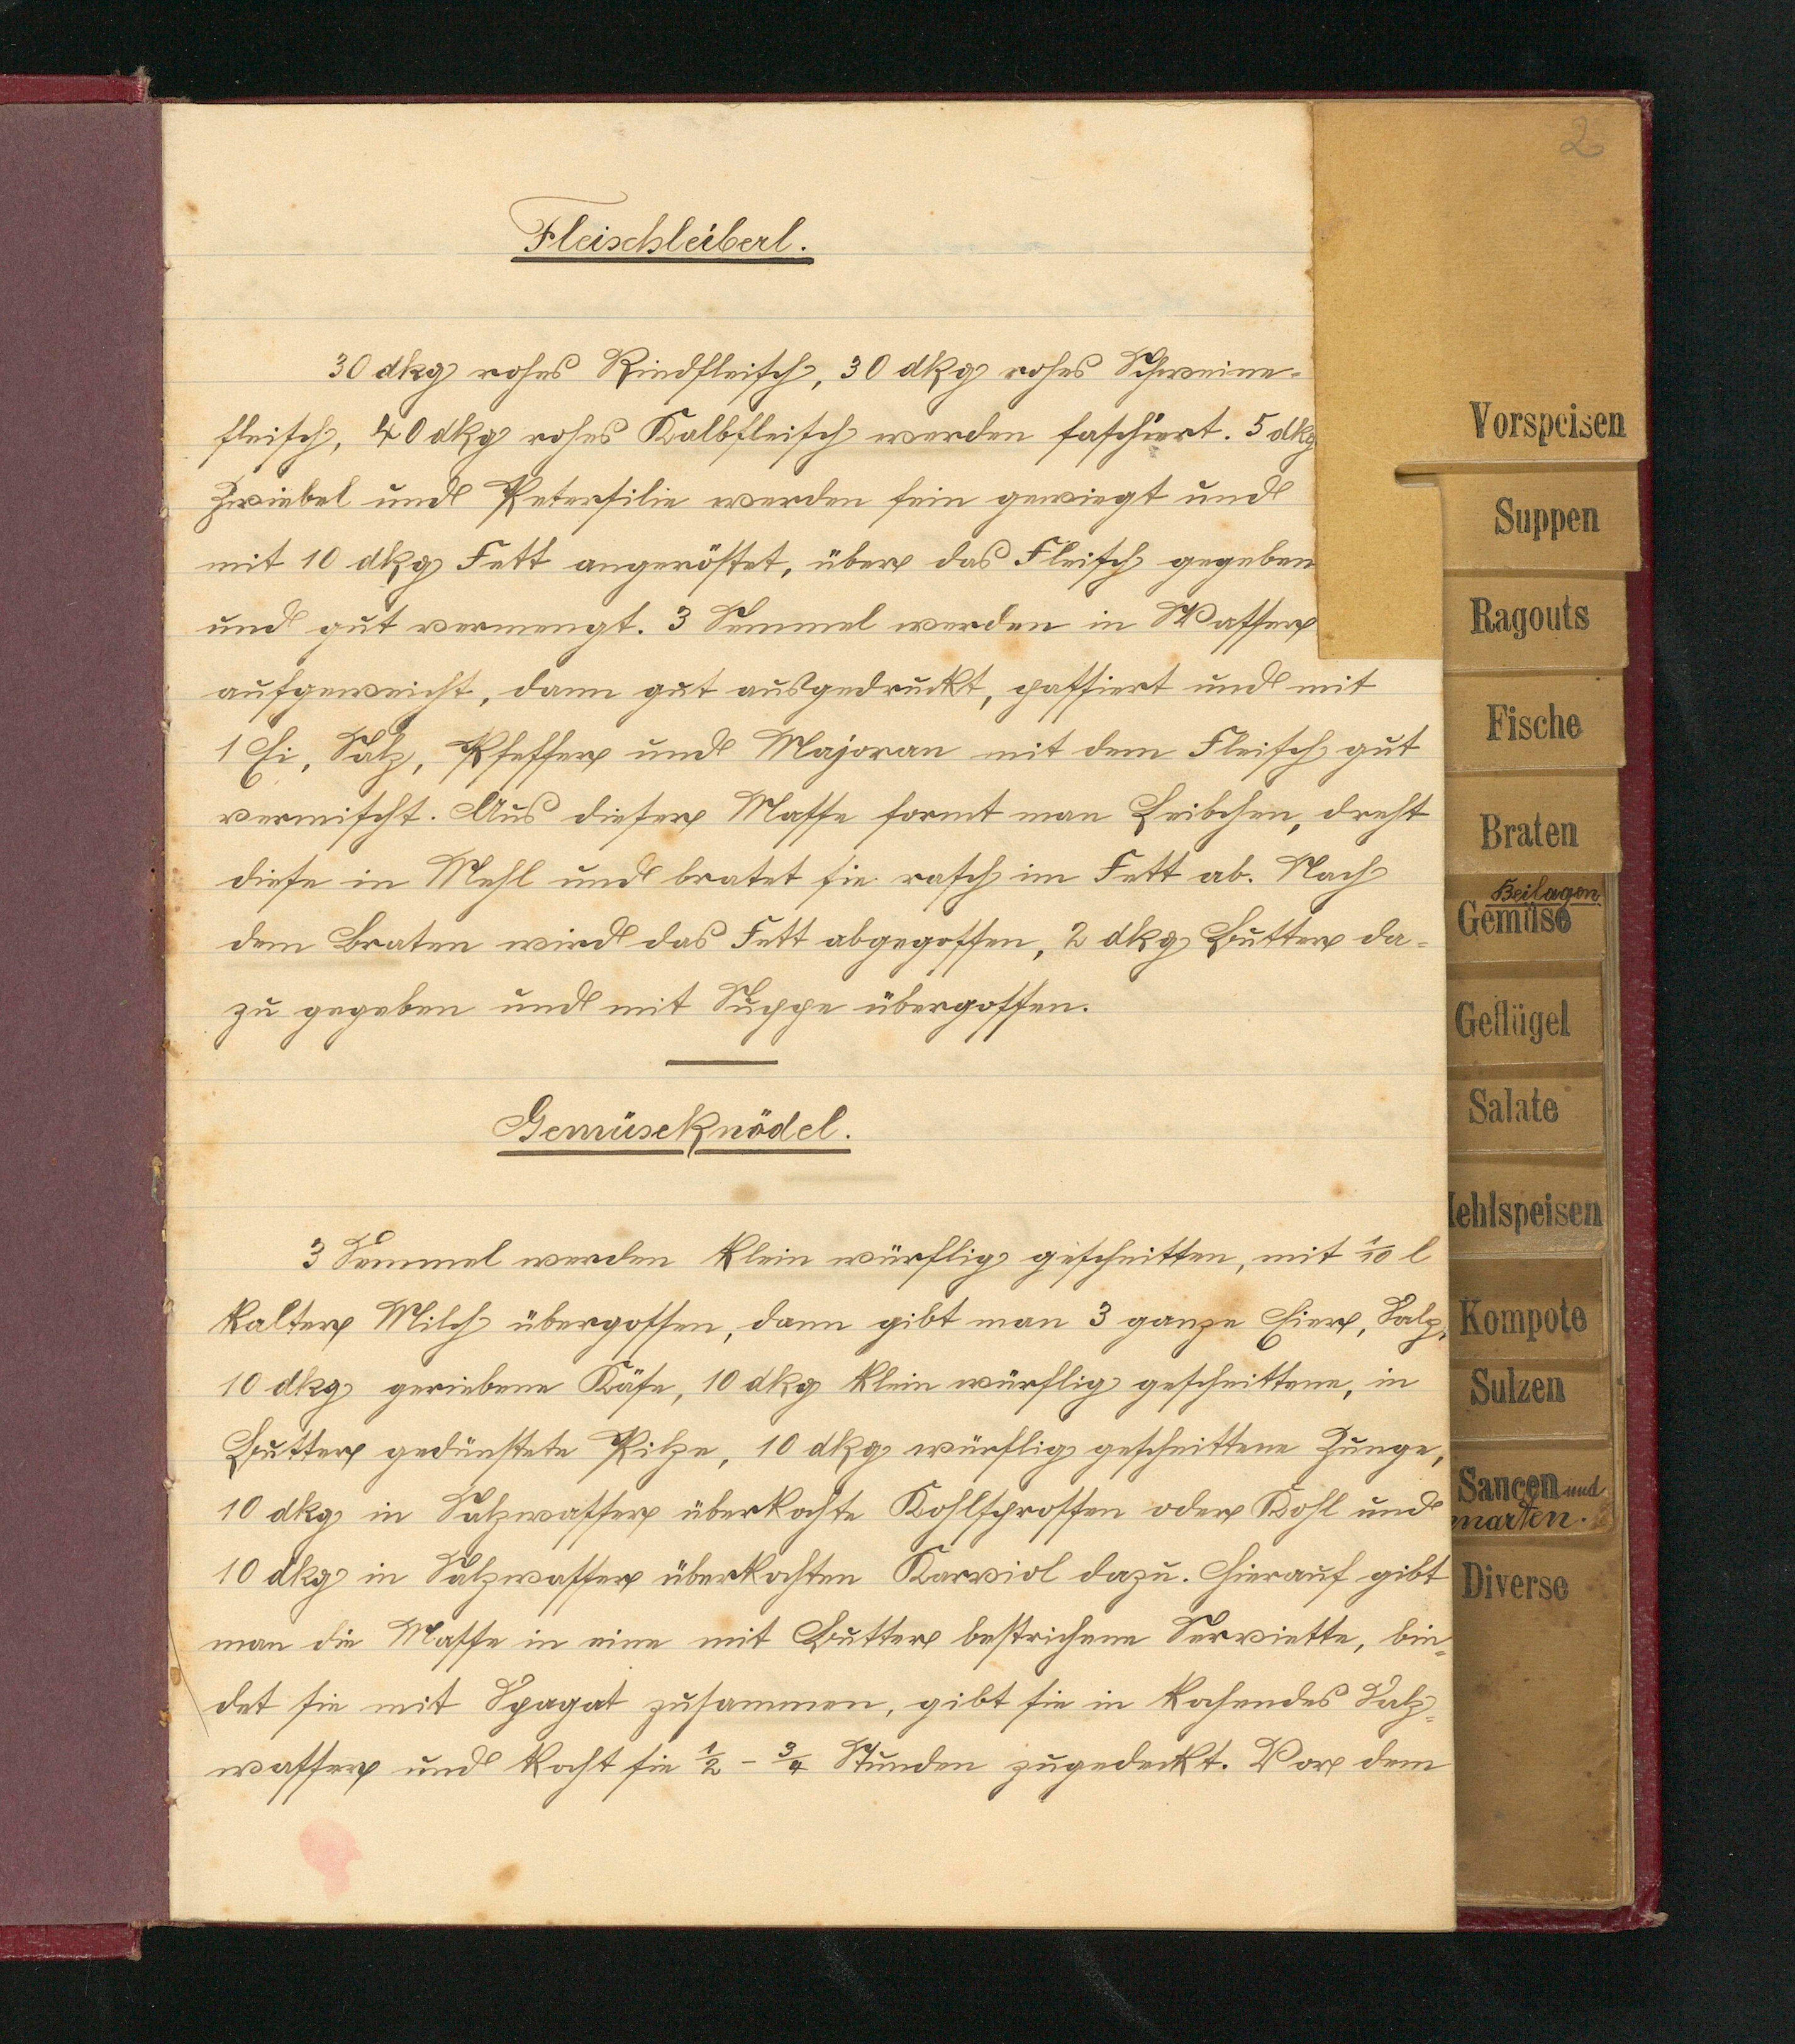 2
Fleischleiberl.
30 dkg rohes Rindfleisch, 30 dkg rohes Schweine-
fleisch, 40 dkg rohes Kalbfleisch werden faschiert. 5 dkg
Zwiebel und Petersilie werden fein gewiegt und
mit 10 dkg Fett angeröstet, über das Fleisch gegeben
und gut vermengt. 3 Semmel werden in Wasser
aufgeweicht, dann gut ausgedruckt, passiert und mit
1 Ei, Salz, Pfeffer und Majoran mit dem Fleisch gut
vermischt. Aus dieser Masse formt man Leibchen, dreht
diese in Mehl und bratet sie rasch im Fett ab. Nach
dem Braten wird das Fett abgegossen, 2 dkg Butter da-
zu gegeben und mit Suppe übergossen.
Gemüseknödel.
3 Semmel werden klein würflig geschnitten, mit 1/10 l
kalter Milch übergossen, dann gibt man 3 ganze Eier, Salz,
10 dkg geriebene Käse, 10 dkg klein würflig geschnittene, in
Butter gedünstete Pilze, 10 dkg würflig geschnittene Zunge,
10 dkg in Salzwasser überkochte Kohlsprossen oder Kohl und
10 dkg in Salzwasser überkochten Karviol dazu. Hierauf gibt
man die Masse in eine mit Butter bestrichene Serviette, bin-
det sie mit Spagat zusammen, gibt sie in kochendes Salz-
wasser und kocht sie 1/2 - 3/4 Stunden zugedeckt. Vor dem
Vorspeisen
Suppen
Ragouts
Fische
Braten
Beilagen
Gemüse
Geflügel
Salate
ehlspeisen
Kompote
Sulzen
Saucen und
marten.
Diverse